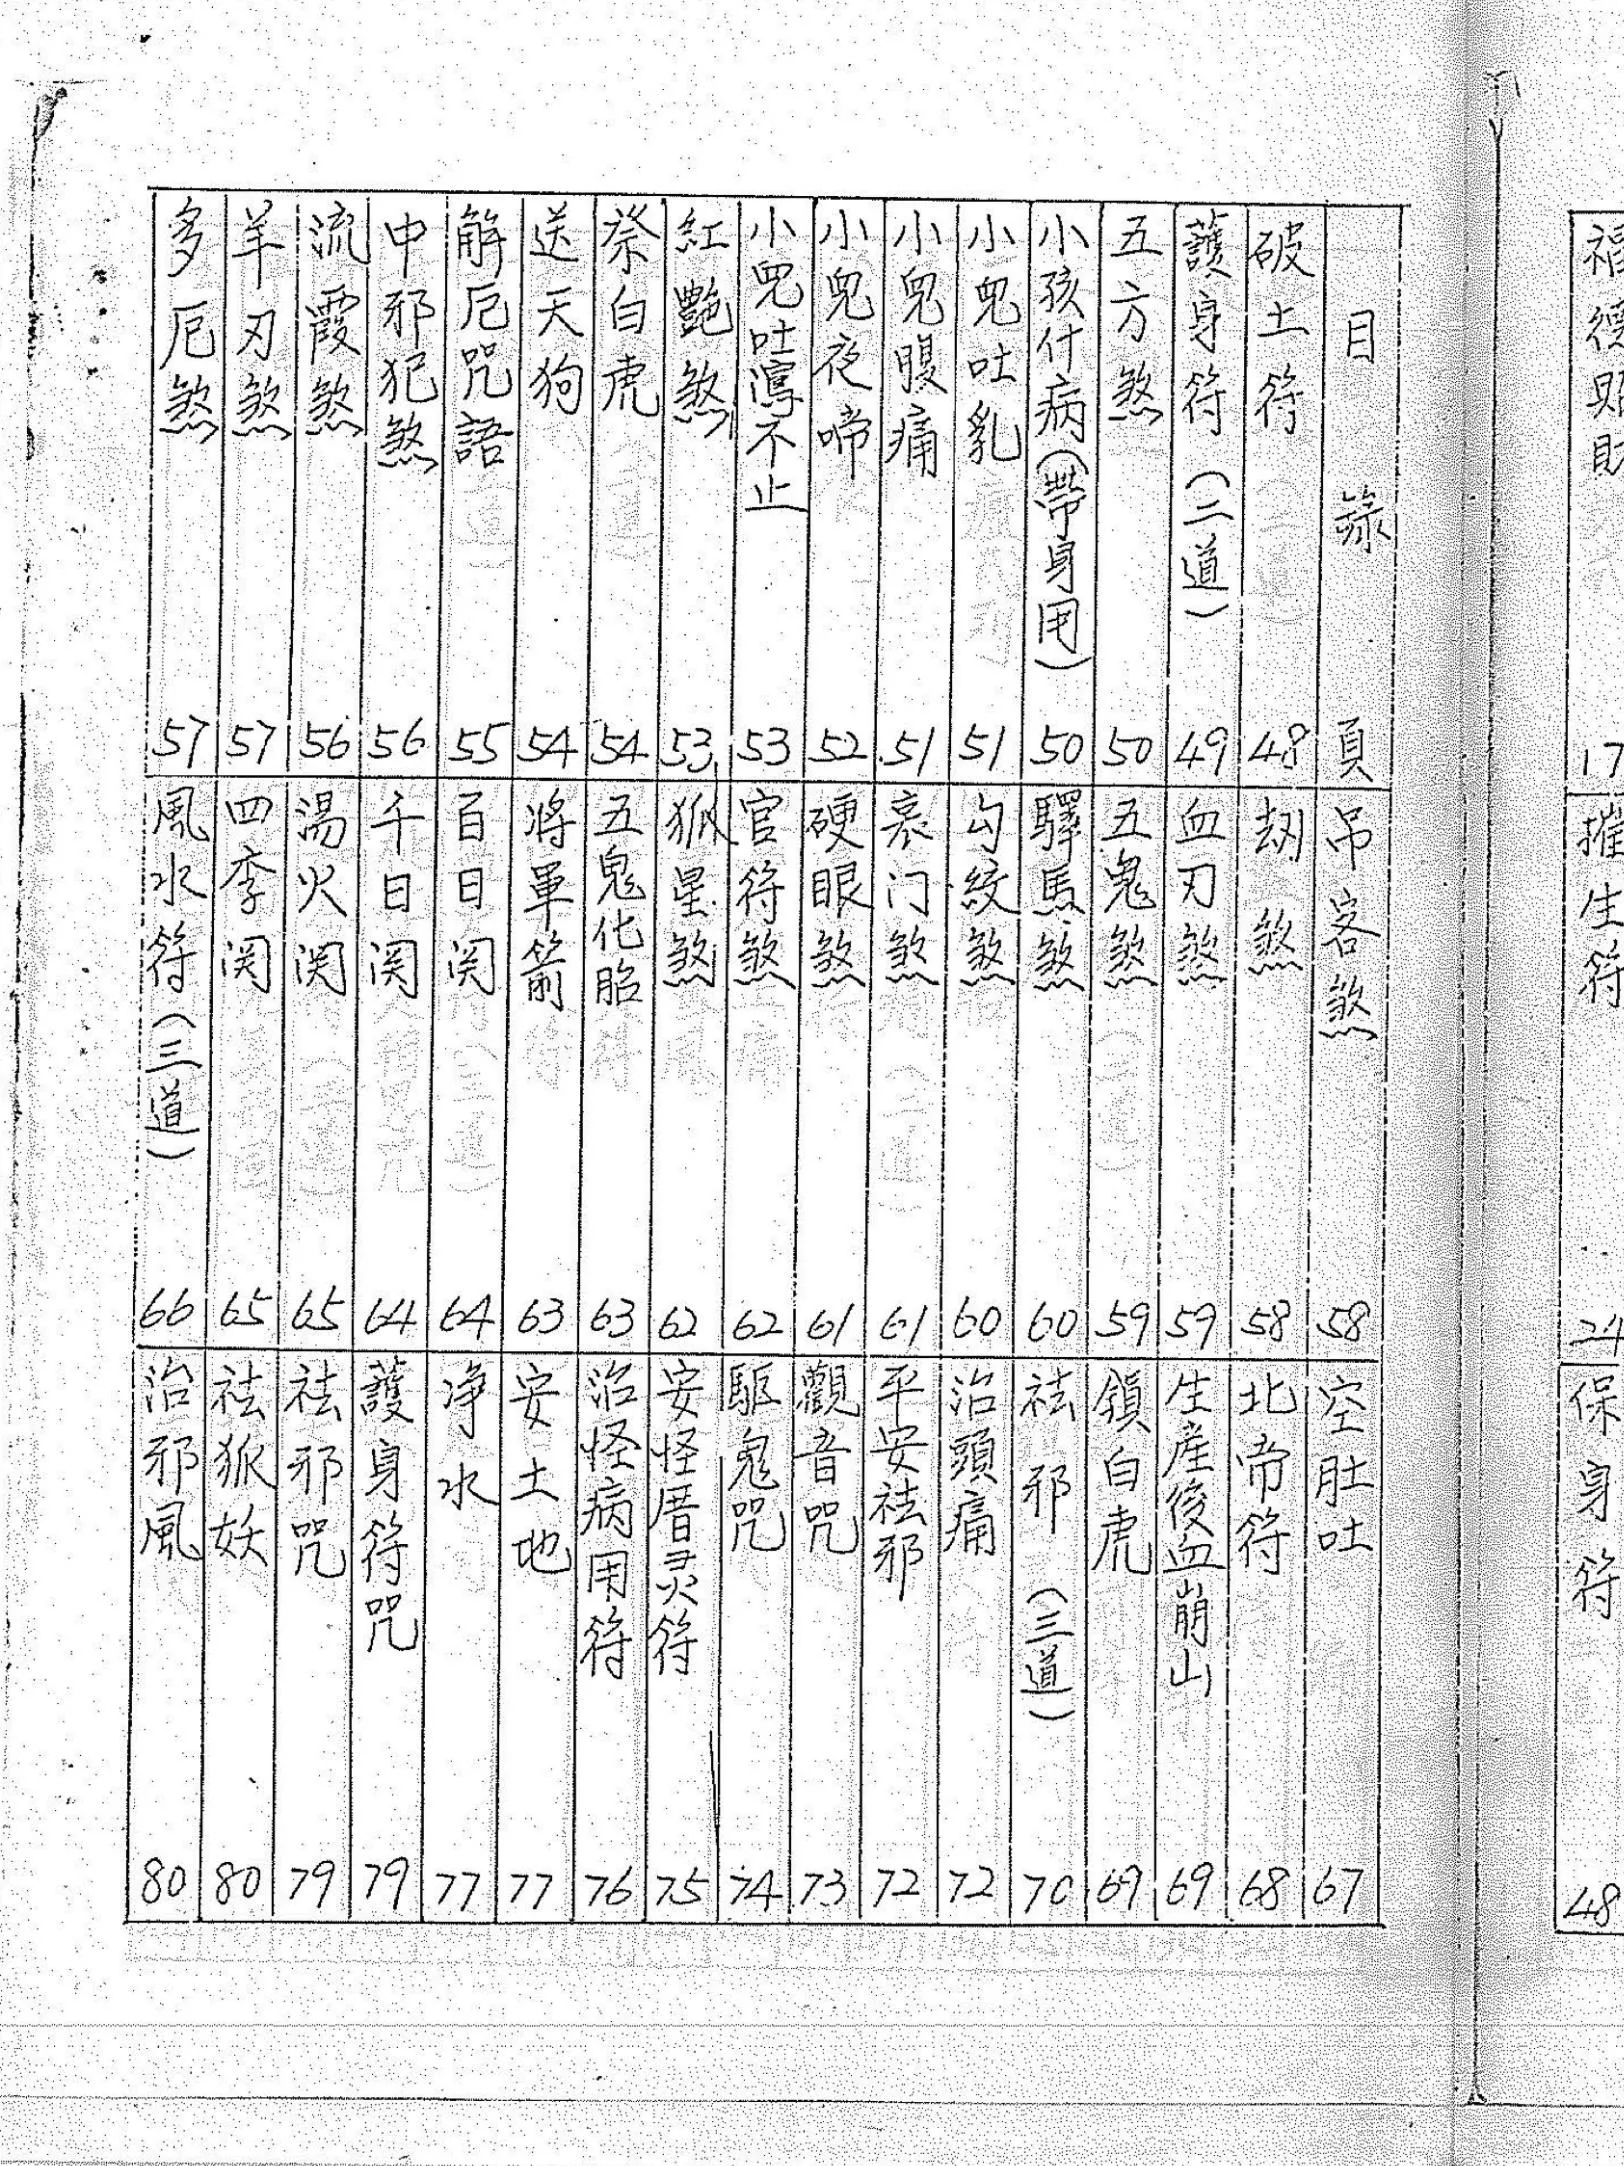 福德賜財 17
催生符 24
保身符 48
目錄 頁
破土符 48
護身符(二道) 49
五方煞 50
小孩什病(帶身用) 50
小兒吐乳 51
小兒腹痛 51
小兒夜啼 52
小兒吐瀉不止 53
紅艷煞 53
祭白虎 54
送天狗 54
解厄咒語 55
中邪犯煞 56
流霞煞 56
羊刃煞 57
多厄煞 57
吊客煞 58
劫煞 58
血刃煞 59
五鬼煞 59
驛馬煞 60
勾絞煞 60
喪门煞 61
硬眼煞 61
官符煞 62
狐星煞 62
五鬼化胎 63
将軍箭 63
百日関 64
千日関 64
湯火関 65
四季関 65
風水符(三道) 66
空肚吐 67
北帝符 68
生産後血崩山 69
鎮白虎 69
祛邪(三道) 70
治頭痛 72
平安祛邪 72
觀音咒 73
駆鬼咒 74
安怪厝灵符 75
治怪病用符 76
安土地 77
净水 77
護身符咒 79
祛邪咒 79
祛狐妖 80
治邪風 80